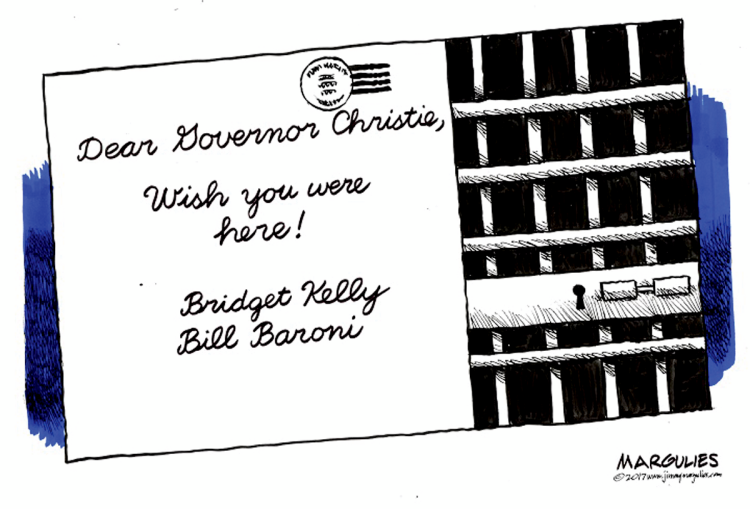 Dear Governor Christie,
Wish you were
here!
Bridget Kelly
Bill Baroni
MARGULIES
©2017 www.jimmymargulies.com